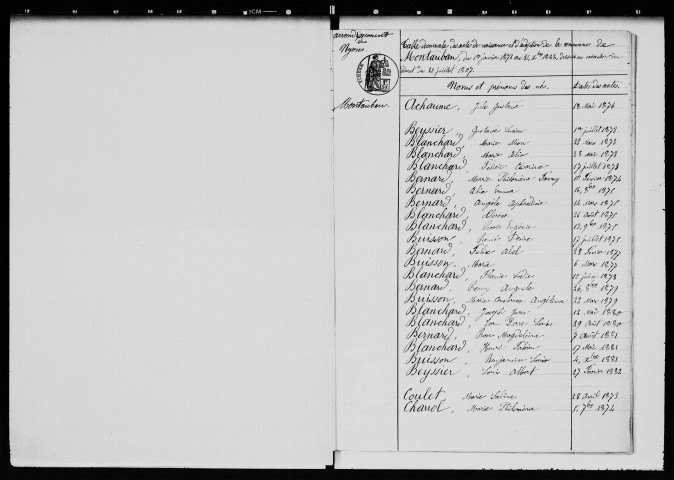 arrondissement
de
Nyons.
Table décennale des actes de naissance et d'adoption de la commune de
Montauban, du 1er janvier 1873 au 31 Xbre 1882, dressée en exécution du
décret du 20 juillet 1807.
Noms et prénoms des nés. Dates des actes.
Montauban. Achaume, Jules Gustave 18 Mai 1876
Beyssier, Gustave 1er juillet 1873
Blanchard, Marie 28 mars 1873
Blanchard, Marie 28 mai 1873
Blanchard, Félicie 17 juillet 1873
Bernard, Marie Philomène Fanny 10 Février 1874
Bernard, Emma 16, 8bre 1875
Bernard, Angèle 14 Mars 1875
Blanchard, 26 août 1875
Blanchard, Rose Eugénie 13, 9bre 1875
Buisson, René Désiré 17 juillet 1875
Bernard, Félix Abel 28 Février 1877
Buisson, Marie 6 Mars 1877
Blanchard, 10 juin 1878
Bernard, Rémy Auguste 26, 8bre 1879
Buisson, Marie Angelina 22 Mars 1879
Blanchard, Joseph Jean 12 Mai 1880
Blanchard, Louis 29 août 1880
Bernard, Rose Magdeleine 7 août 1881
Blanchard, Henri 17 Mai 1881
Buisson, Benjamin Louis 4, Xbre 1881
Beyssier, Louis Albert 27 Février 1882
Coulet, Marie 28 avril 1873
Chanol, Marie Philomène 5, 7bre 1874